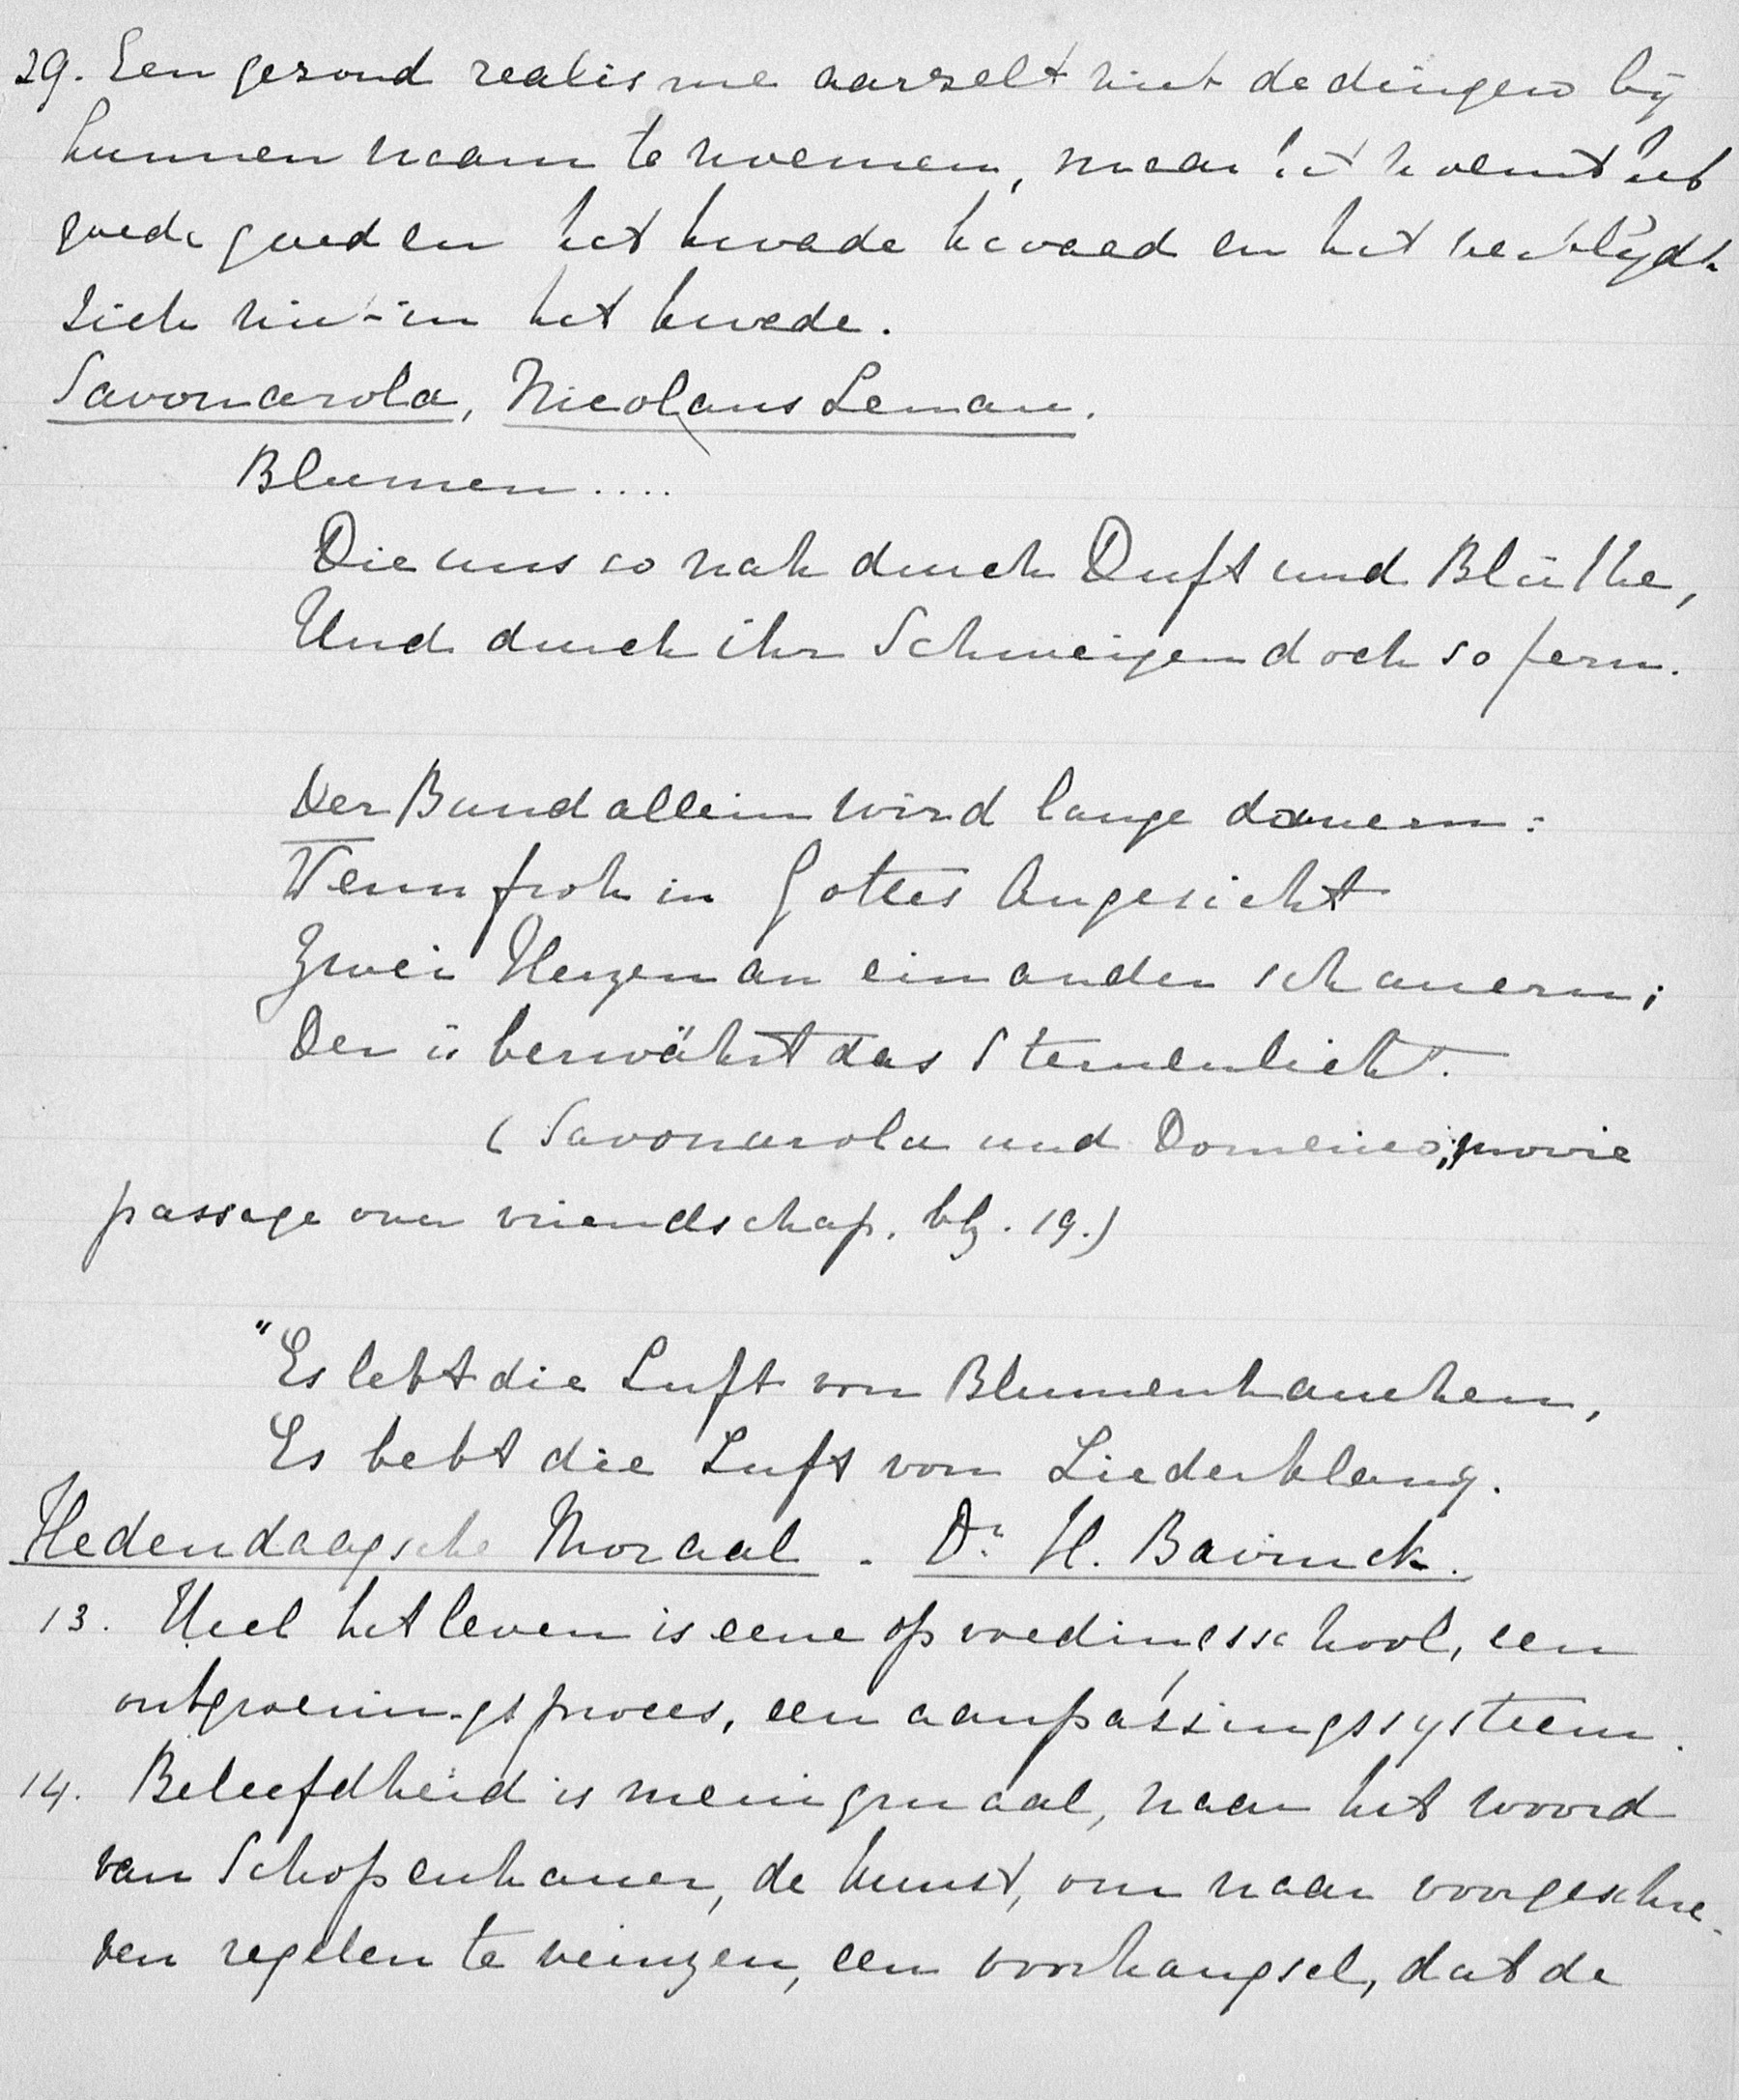 29. Een gezond realisme aarzelt niet de dingen bij
hunnen naam te noemen, maar het noemt het
goede goed en het kwade kwaad en het verblijdt
zich niet in het kwade.
Savonarola, Nicolaus Lenau.
Blumen....
Die uns so nah durch Duft und Blüthe,
Und durch ihr Schweigen doch so fern.
Der Bund allein wird lange dauern:
Wenn froh in Gottes Angesicht
Zwei Herzen an einander schauern;
Der überwährt das Sternenlicht.
(Savonarola und Domenico;
passage over vriendschap. blz. 19.)
"Es lebt die Luft von Blumenhauchen,
Es bebt die Luft von Liederklang.
Hedendaagsche Moraal - Dr. H. Bavinck.
13. Heel het leven is eene opvoedingsschool, een
ontgroeningsproces, een aanpassingssysteem.
14. Beleefdheid is menigmaal, naar het woord
van Schopenhauer, de kunst, om naar voorgeschre-
ven regelen te veinzen, een voorhangsel, dat de